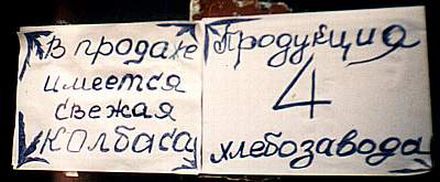 В продаже
имеется
свежая
колбаса
Продукция
4
хлебозавода